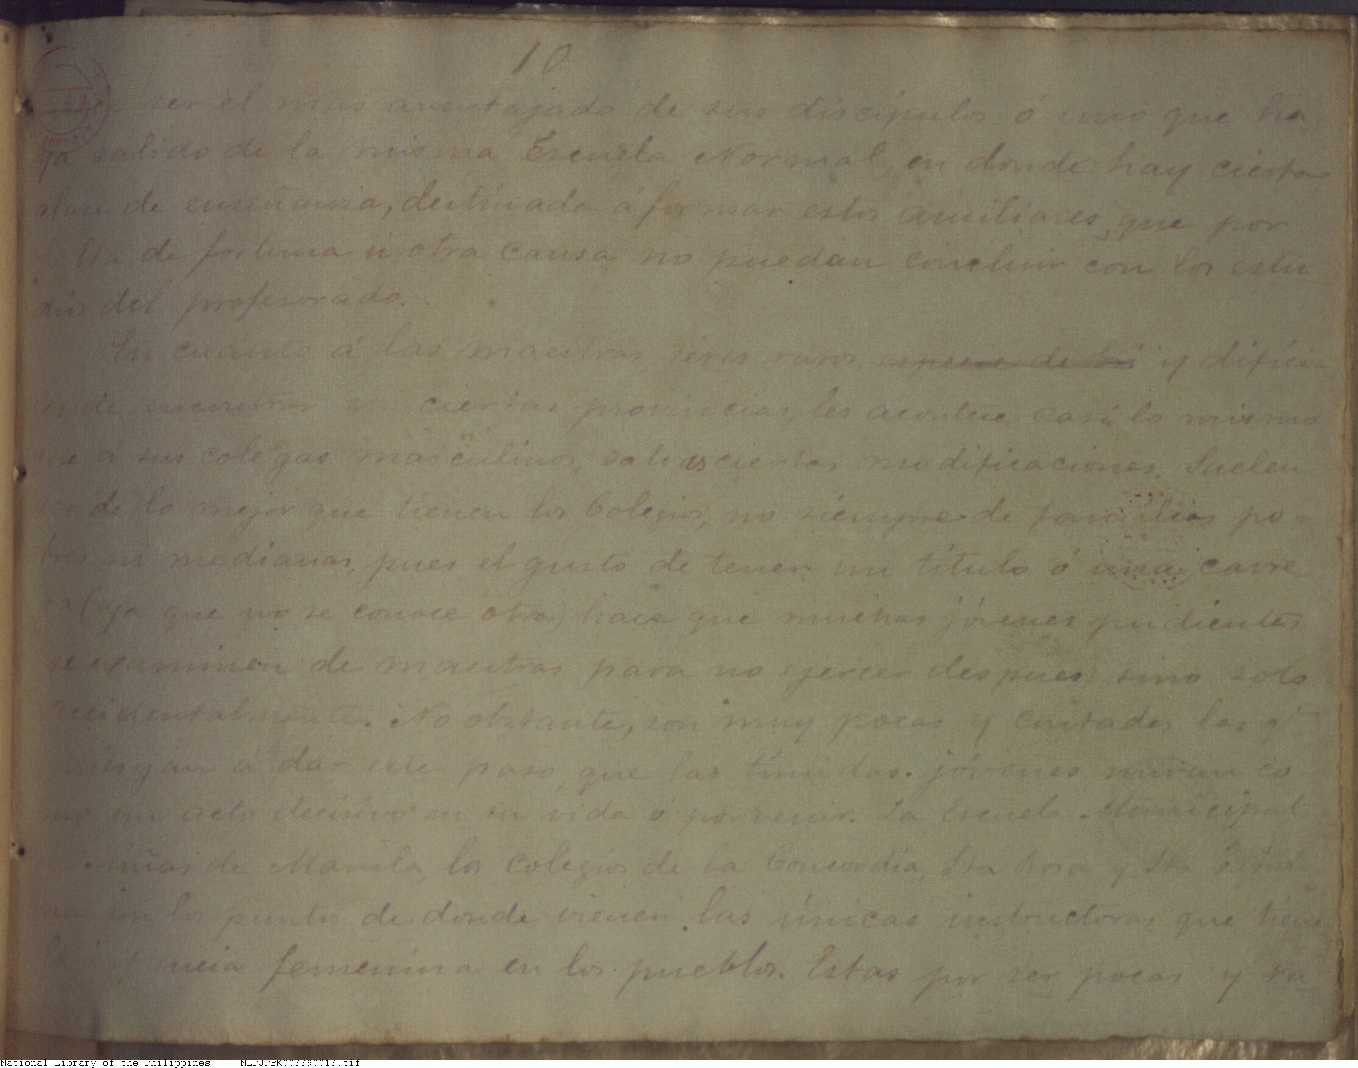 10
ser el mas aventajado de sus discípulos ó uno que ha
ya salido de la misma Escuela Normal, en donde hay cierta
clase de enseñanza, destinada á formar estos auxiliares, que por
de fortuna u otra causa no puedan concluir con los estu
dios del profesorado.
En cuanto á las maestras, seres raros y difíci
de encontrar en ciertas provincias, les acontece casi lo mismo
que a sus colegas masculinos, salvas ciertas modificaciones. Suelen
de lo mejor que tienen los Colegios, no siempre de familias po-
bres ni medianas, pues el gusto de tener un título ó una carre
ra (ya que no se conoce otra) hace que muchas jóvenes pudientes
se examinen de maestras para no ejercer despues sino solo
accidentalmente. No obstante, son muy pocas y contadas las q.
á dar ese paso, que las tímidas jóvenes miran co
mo un acto decisivo en su vida ó porvenir. La Escuela Municipal
niñas de Manila, los colegios de la Concordia, Sta Rosa y Sta
son los puntos de donde vienen las únicas instructoras que tiene
la femenina en los pueblos. Estas por ser pocas y